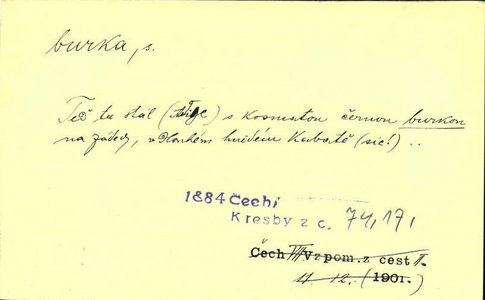 burka, s.
Teď tu stál (střele) s kosmatou černou burkou
na zádech, v dlouhém hnědém kabátě (sic!) ..
1884 Čech
Kresby z c. 74, 17,
Čech VII Vzpom. z cest II.
11. 12. (1901.)